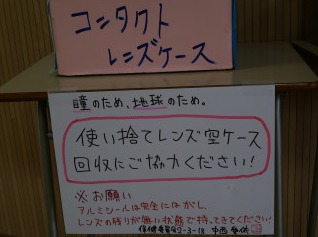 コンタクト
レンズケース
瞳のため、地球のため。
使い捨てレンズ空ケース
回収にご協力ください!
※お願い
アルミシールは完全にはがし、
レンズの残りが無い状態で持ってきてください!
保健委員会 2-3-18 中西